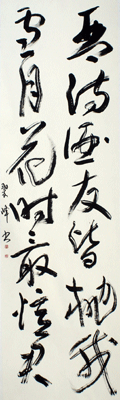 琴詩酒友皆抛我
雪月花時最憶君
翠峰书